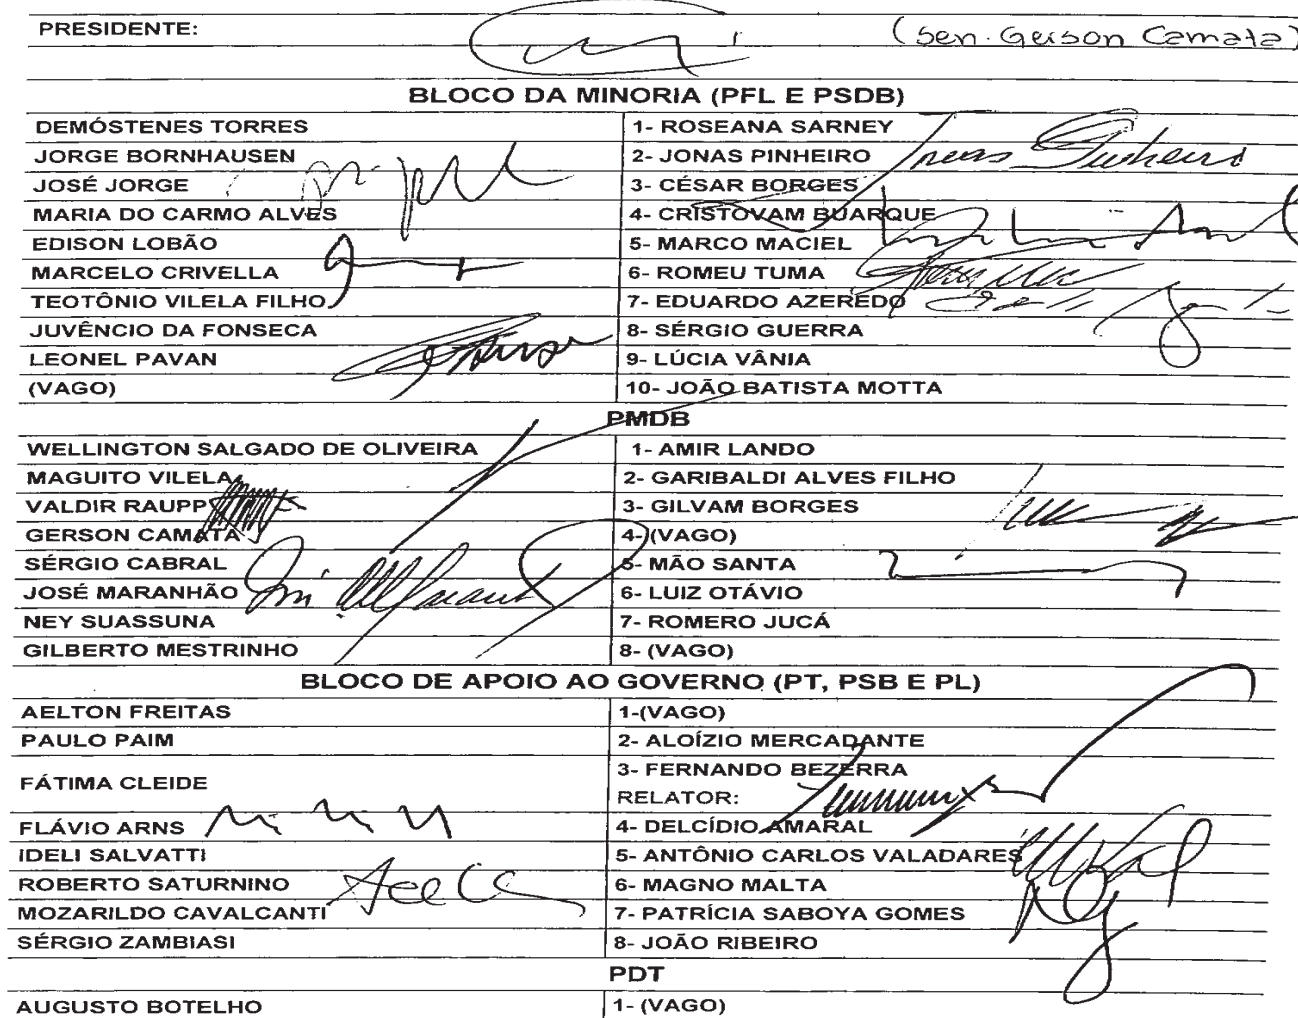 PRESIDENTE: (Sen. Gerson Camata)
BLOCO DA MINORIA (PFL E PSDB)
DEMÓSTENES TORRES 1- ROSEANA SARNEY
JORGE BORNHAUSEN 2- JONAS PINHEIRO Jonas Pinheiro
JOSÉ JORGE 3- CÉSAR BORGES
MARIA DO CARMO ALVES 4- CRISTOVAM BUARQUE
EDISON LOBÃO 5- MARCO MACIEL
MARCELO CRIVELLA 6- ROMEU TUMA
TEOTÔNIO VILELA FILHO 7- EDUARDO AZEREDO
JUVÊNCIO DA FONSECA 8- SÉRGIO GUERRA
LEONEL PAVAN 9- LÚCIA VÂNIA
(VAGO) 10- JOÃO BATISTA MOTTA
PMDB
WELLINGTON SALGADO DE OLIVEIRA 1- AMIR LANDO
MAGUITO VILELA 2- GARIBALDI ALVES FILHO
VALDIR RAUPP 3- GILVAM BORGES
GERSON CAMATA 4-(VAGO)
SÉRGIO CABRAL 5- MÃO SANTA
JOSÉ MARANHÃO 6- LUIZ OTÁVIO
NEY SUASSUNA 7- ROMERO JUCÁ
GILBERTO MESTRINHO 8- (VAGO)
BLOCO DE APOIO AO GOVERNO (PT, PSB E PL)
AELTON FREITAS 1-(VAGO)
PAULO PAIM 2- ALOÍZIO MERCADANTE
FÁTIMA CLEIDE 3- FERNANDO BEZERRA
RELATOR:
FLÁVIO ARNS 4- DELCÍDIO AMARAL
IDELI SALVATTI 5- ANTÔNIO CARLOS VALADARES
ROBERTO SATURNINO 6- MAGNO MALTA
MOZARILDO CAVALCANTI 7- PATRÍCIA SABOYA GOMES
SÉRGIO ZAMBIASI 8- JOÃO RIBEIRO
PDT
AUGUSTO BOTELHO 1- (VAGO)